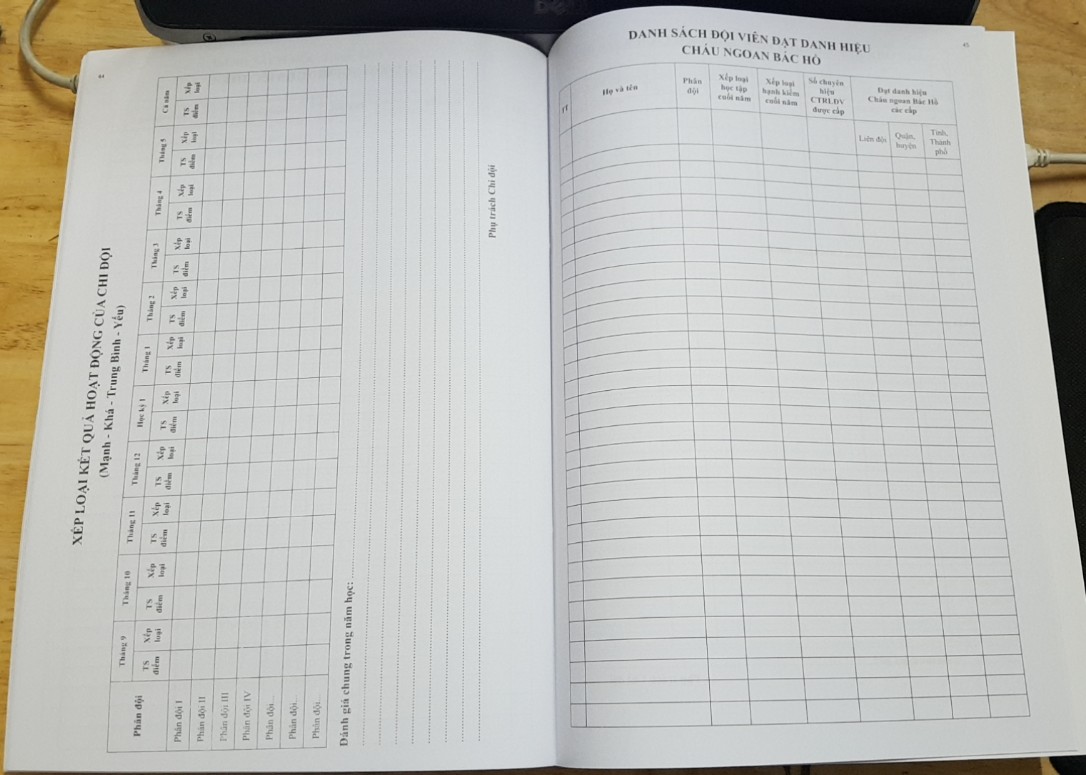 DELL
XẾP LOẠI KẾT QUẢ HOẠT ĐỘNG CỦA CHI ĐỘI
(Mạnh - Khá - Trung Bình - Yếu)
Phân đội Tháng 9 Tháng 10 Tháng 11 Tháng 12 Học kỳ 1 Tháng 1 Tháng 2 Tháng 3 Tháng 4 Tháng 5 Cả năm
TS điểm Xếp loại TS điểm Xếp loại TS điểm Xếp loại TS điểm Xếp loại TS điểm Xếp loại TS điểm Xếp loại TS điểm Xếp loại TS điểm Xếp loại TS điểm Xếp loại TS điểm Xếp loại TS điểm Xếp loại
Phân đội I
Phân đội II
Phân đội III
Phân đội IV
Phân đội...
Phân đội...
Phân đội...
Đánh giá chung trong năm học:
Phụ trách Chi đội
45
DANH SÁCH ĐỘI VIÊN ĐẠT DANH HIỆU
CHÁU NGOAN BÁC HỒ
TT Họ và tên Phân đội Xếp loại học tập cuối năm Xếp loại hạnh kiểm cuối năm Số chuyên hiệu CTRLĐV được cấp Đạt danh hiệu Cháu ngoan Bác Hồ các cấp
Liên đội Quận, huyện Tỉnh, Thành phố